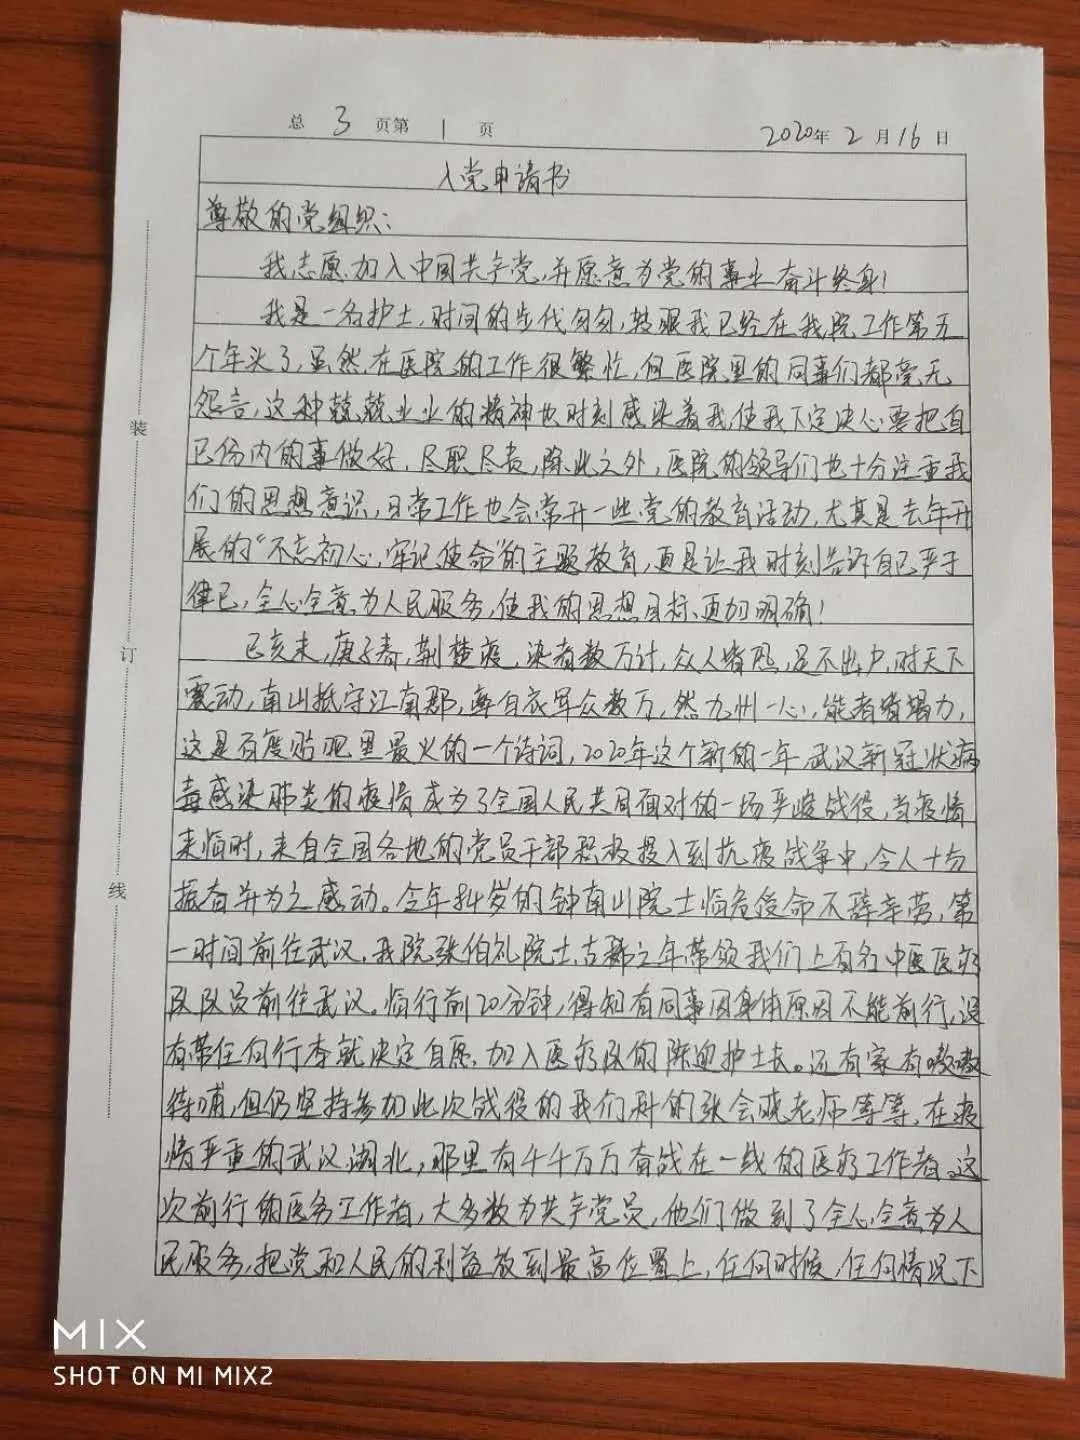 总 3 页第 1 页 2020年2月16日
入党申请书
尊敬的党组织：
我志愿加入中国共产党，并愿意为党的事业奋斗终身！
我是一名护士，时间的步伐匆匆，转眼我已经在我院工作第五
个年头了，虽然在医院的工作很繁忙，但医院里的同事们都毫无
怨言，这种兢兢业业的精神也时刻感染着我，使我下定决心要把自
己份内的事做好，尽职尽责，除此之外，医院的领导们也十分注重我
们的思想意识，日常工作也会常开一些党的教育活动，尤其是去年开
展的“不忘初心，牢记使命”的主题教育，更是让我时刻告诉自己严于
律己，全心全意为人民服务，使我的思想目标更加明确！
己亥末，庚子春，荆楚疫，染者数万计，众人皆恐，足不出户，时天下
震动，南山抵守江南郡，率白衣军众数万，然九州一心，能者皆竭力，
这是百度贴吧里最火的一个诗词，2020年这个新的一年，武汉新冠状病
毒感染肺炎的疫情成为了全国人民共同面对的一场严峻战役，当疫情
来临时，来自全国各地的党员干部积极投入到抗疫战争中，令人十分
振奋并为之感动。今年84岁的钟南山院士临危受命不辞辛劳，第
一时间前往武汉，我院张伯礼院士，古稀之年带领我们上百名中医医疗
队队员前往武汉。临行前20分钟，得知有同事因身体原因不能前行，没
有带任何行李就决定自愿加入医疗队的陈迎护士长。还有家有嗷嗷
待哺，但仍坚持参加此次战役的我们科的张会晓老师等等，在疫
情严重的武汉湖北，那里有千千万万奋战在一线的医疗工作者，这
次前行的医务工作者，大多数为共产党员，他们做到了全心全意为人
民服务，把党和人民的利益放到最高位置上，任何时候，任何情况下
装
订
线
MIX
SHOT ON MI MIX2